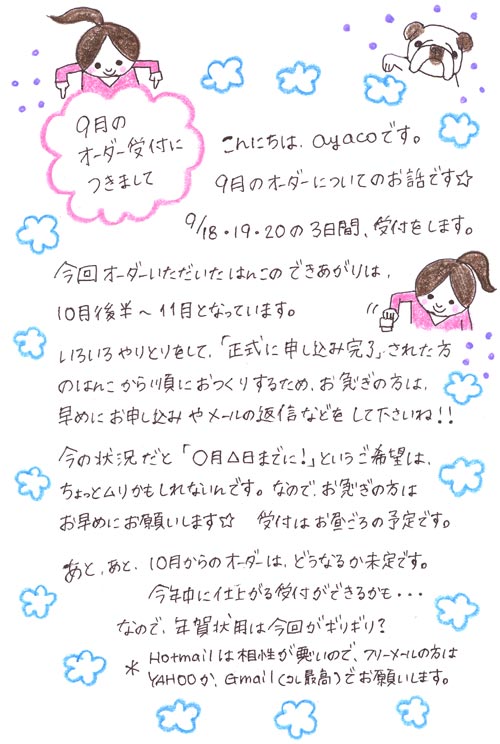 9月の
オーダー受付に
つきまして
こんにちは、ayacoです。
9月のオーダーについてのお話です☆
9/18・19・20の3日間、受付をします。
今回オーダーいただいたはんこのできあがりは、
10月後半〜11月となっています。
いろいろやりとりをして、「正式に申し込み完了」された方
のはんこから順におつくりするため、お急ぎの方は、
早めにお申し込みやメールの返信などをして下さいね!!
今の状況だと「〇月△日までに!」というご希望は、
ちょっとムリかもしれないんです。なので、お急ぎの方は
お早めにお願いします☆ 受付はお昼ごろの予定です。
あと、あと、10月からのオーダーは、どうなるか未定です。
今年中に仕上がる受付ができるかも・・・
なので、年賀状用は今回がギリギリ?
* Hotmailは相性が悪いので、フリーメールの方は
YAHOOか、Gmail(コレ最高)でお願いします。